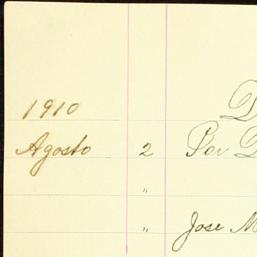 1910
Agosto 2 Por D
"
" Jose M